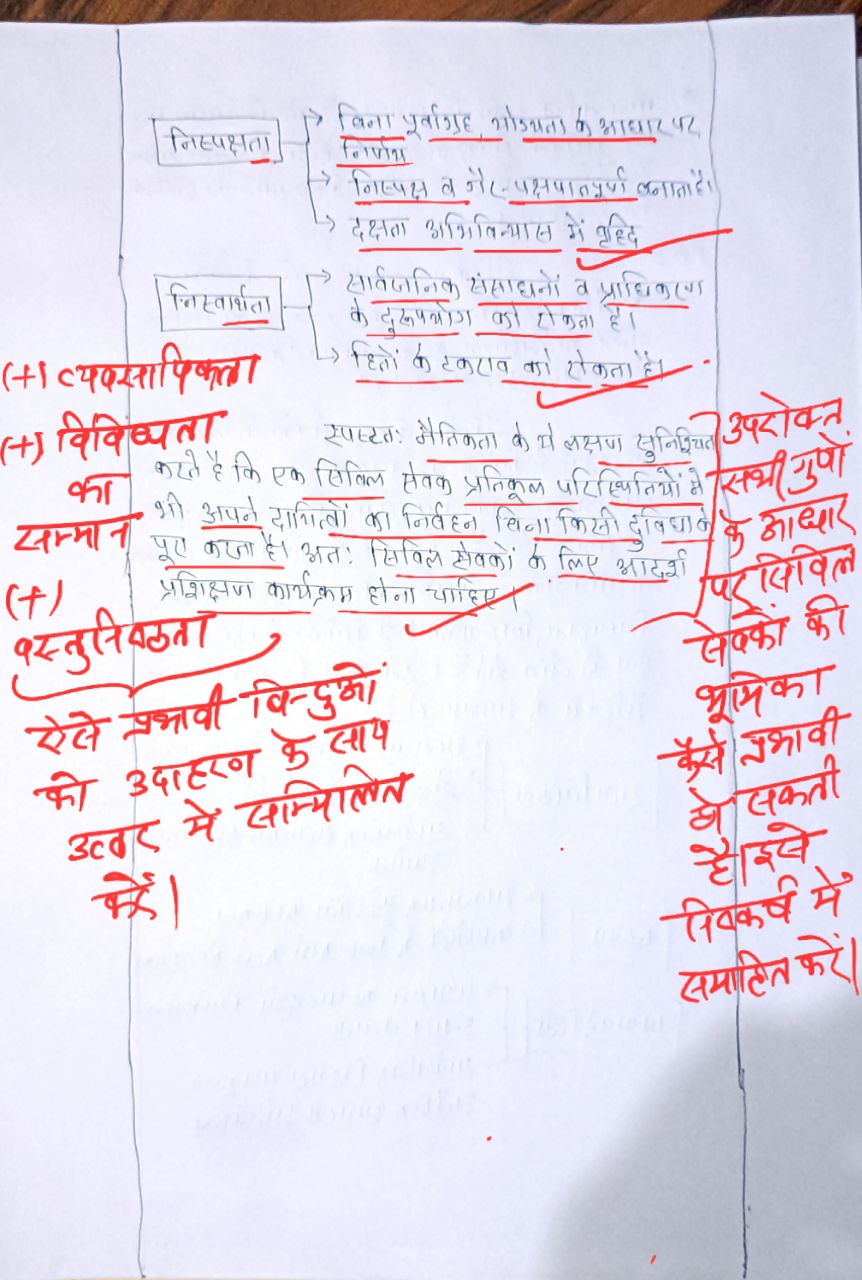 निष्पक्षता
→ बिना पूर्वाग्रह, योग्यता के आधार पर
निर्णय
→ निष्पक्ष व गैर-पक्षपातपूर्ण बनाता है।
→ दक्षता अभिविन्यास में वृद्दि
निस्वार्थता
→ सार्वजनिक संसाधनों व प्राधिकरण
के दुरूपयोग को रोकता है।
→ हितों के टकराव को रोकता है।
स्पष्टतः नैतिकता के ये लक्षण सुनिश्चित
करते है कि एक सिविल सेवक प्रतिकूल परिस्थितियों में
भी अपने दायित्वों का निर्वहन बिना किसी दुविधा के
पूरा करता है। अतः सिविल सेवकों के लिए आदर्श
प्रशिक्षण कार्यक्रम होना चाहिए।
(+) व्यवसायिकता
(+) विविधता
का
सम्मान
(+)
वस्तुनिष्ठता
ऐसे प्रभावी बिन्दुओं
को उदाहरण के साथ
उत्तर में सम्मिलित
करें।
उपरोक्त
सभी गुणों
के आधार
पर सिविल
सेवकों की
भूमिका
कैसे प्रभावी
हो सकती
है। इसे
निष्कर्ष में
समाहित करें।